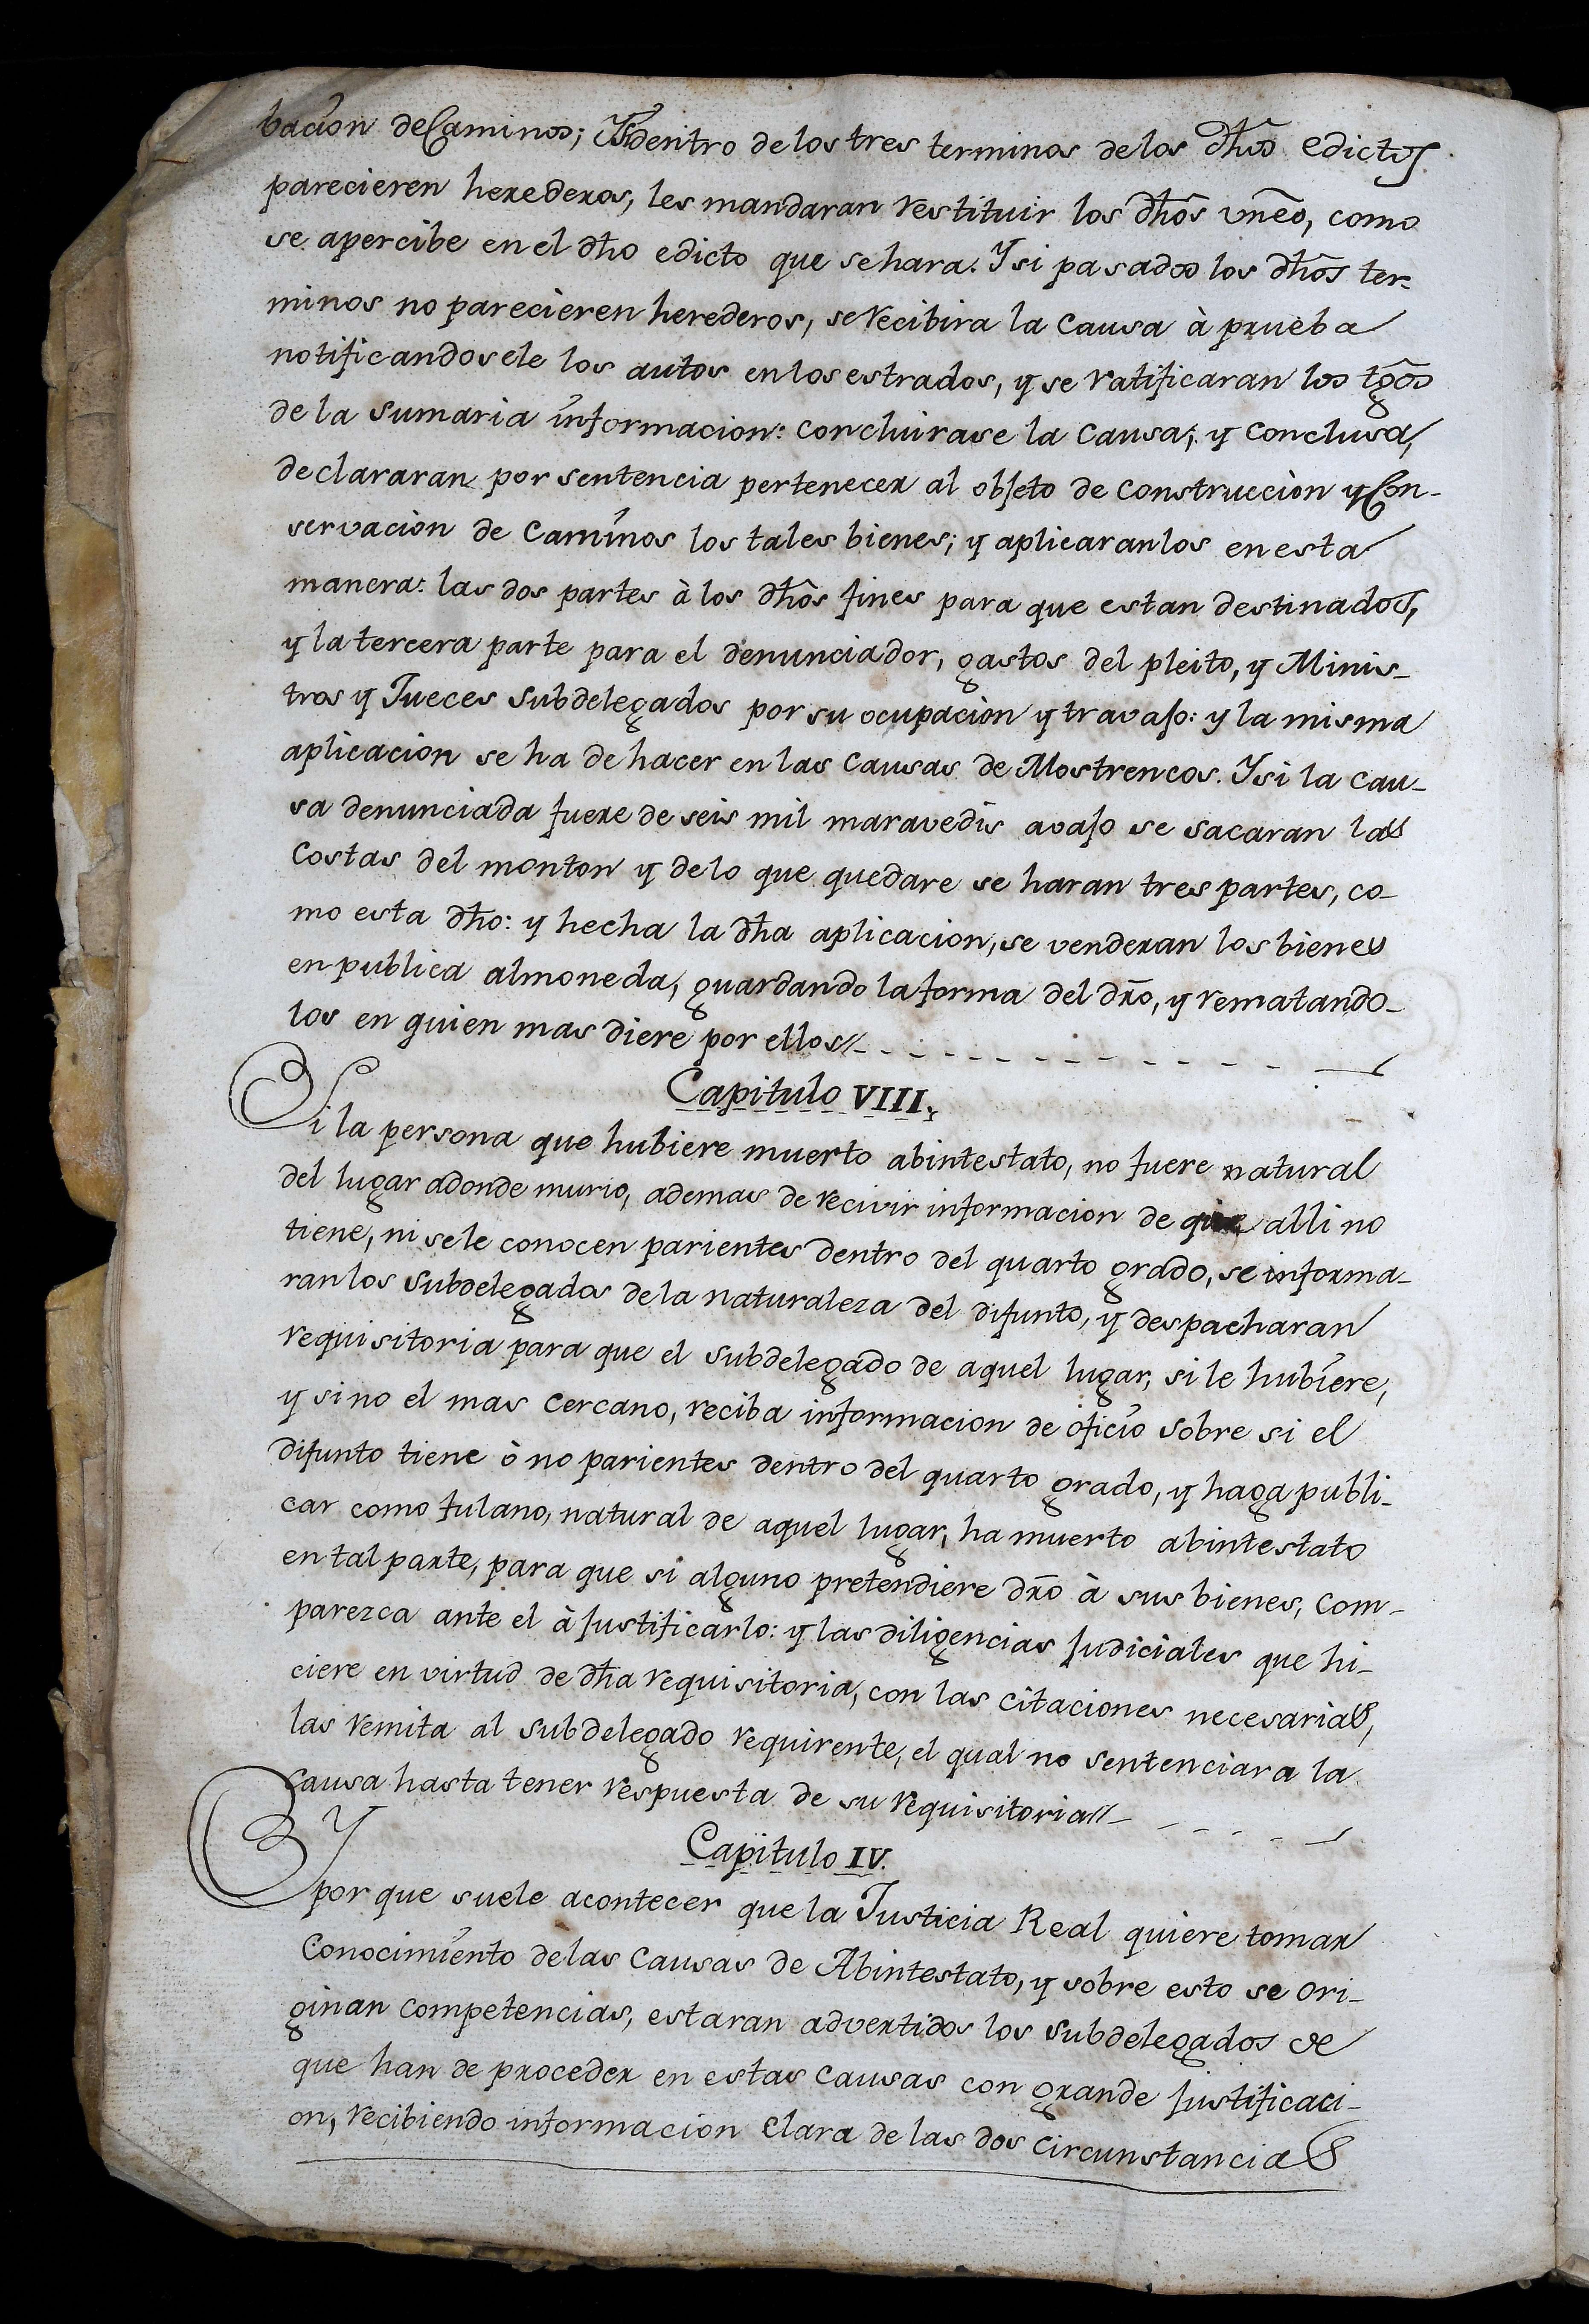 bacion de Caminos; Y si dentro de los tres terminos de los dhõs edictos
parecieren herederos, les mandaran restituir los dhõs vnẽs, como
se apercibe en el dho edicto que se hara. Y si pasados los dhõs ter-
minos no parecieren herederos, se recibira la causa à prueba
notificandosele los autos en los estrados, y se ratificaran los tgõs
de la sumaria informacion: concluirase la causa; y conclusa,
declararan por sentencia pertenecer al objeto de construccion y Con-
servacion de Caminos los tales bienes; y aplicaranlos en esta
manera: las dos partes à los dhõs fines para que estan destinados,
y la tercera parte para el denunciador, gastos del pleito, y Minis-
tros y Jueces subdelegados por su ocupacion y travajo: y la misma
aplicacion se ha de hacer en las causas de Mostrencos. Y si la cau-
sa denunciada fuere de seis mil maravedis avajo se sacaran las
costas del monton y de lo que quedare se haran tres partes, co-
mo esta dho: y hecha la dha aplicacion, se venderan los bienes
en publica almoneda, guardando la forma del dr̃o, y rematando-
los en quien mas diere por ellos//-
Capitulo VIII.
Si la persona que hubiere muerto abintestato, no fuere natural
del lugar adonde murio, ademas de recivir informacion de que alli no
tiene, ni se le conocen parientes dentro del quarto grado, se informa-
ran los subdelegados de la naturaleza del difunto, y despacharan
requisitoria para que el subdelegado de aquel lugar, si le hubiere,
y si no el mas cercano, reciba informacion de oficio sobre si el
difunto tiene ò no parientes dentro del quarto grado, y haga publi-
car como fulano, natural de aquel lugar, ha muerto abintestato
en tal parte, para que si alguno pretendiere dr̃o à sus bienes, com-
parezca ante el à justificarlo: y las diligencias judiciales que hi-
ciere en virtud de dha requisitoria, con las citaciones necesarias,
las remita al subdelegado requirente, el qual no sentenciara la
causa hasta tener respuesta de su requisitoria//-
Capitulo IV.
Y por que suele acontecer que la Justicia Real quiere tomar
conocimiento de las causas de Abintestato, y sobre esto se ori-
ginan competencias, estaran advertidos los subdelegados de
que han de proceder en estas causas con grande justificaci-
on, recibiendo informacion clara de las dos circunstancias